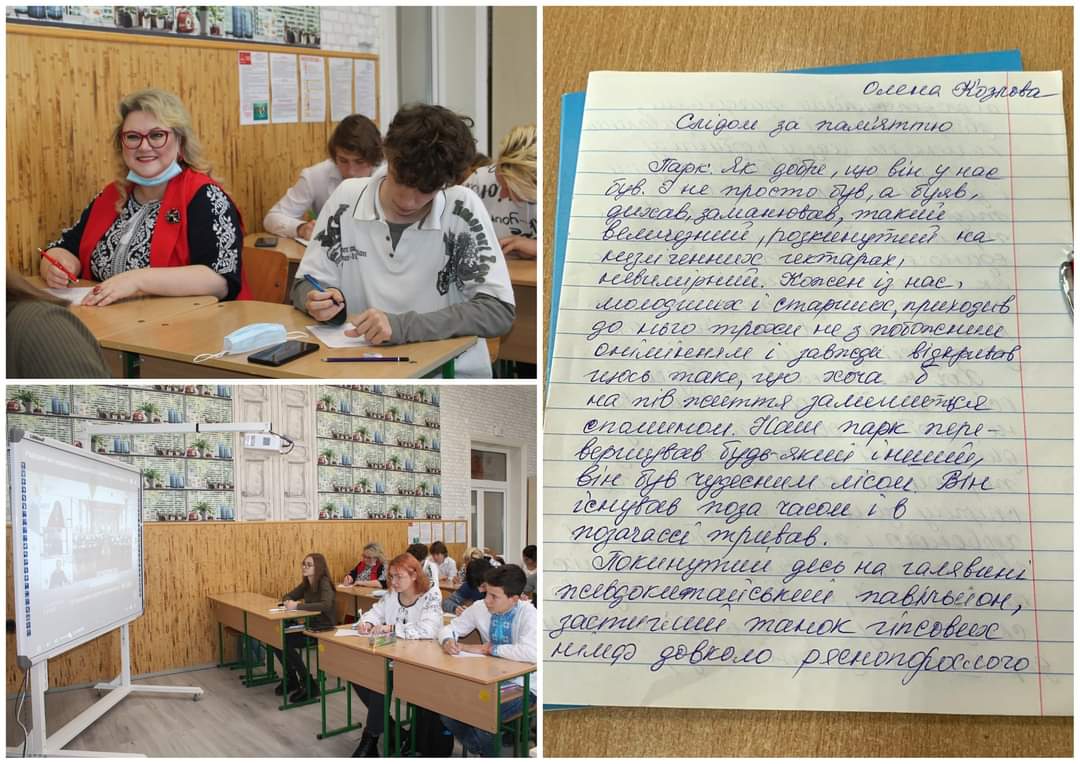 Олена Козлова
Слідом за пам'яттю
Парк. Як добре, що він у нас
був. І не просто був, а буяв,
дихав, заманював, такий
величезний, розкинутий на
незліченних гектарах,
невимірний. Кожен із нас,
молодших і старших, приходив
до нього трохи не з побожним
онімінням і завжди відкривав
щось таке, що хоча б
на пів життя залишиться
спомином. Наш парк пере-
вершував будь-який інший,
він був чудесним лісом. Він
існував поза часом і в
позачассі тривав.
Покинутий десь на галявині
псевдокитайський павільйон,
застиглий танок гіпсових
німф довкола ряснопорослого